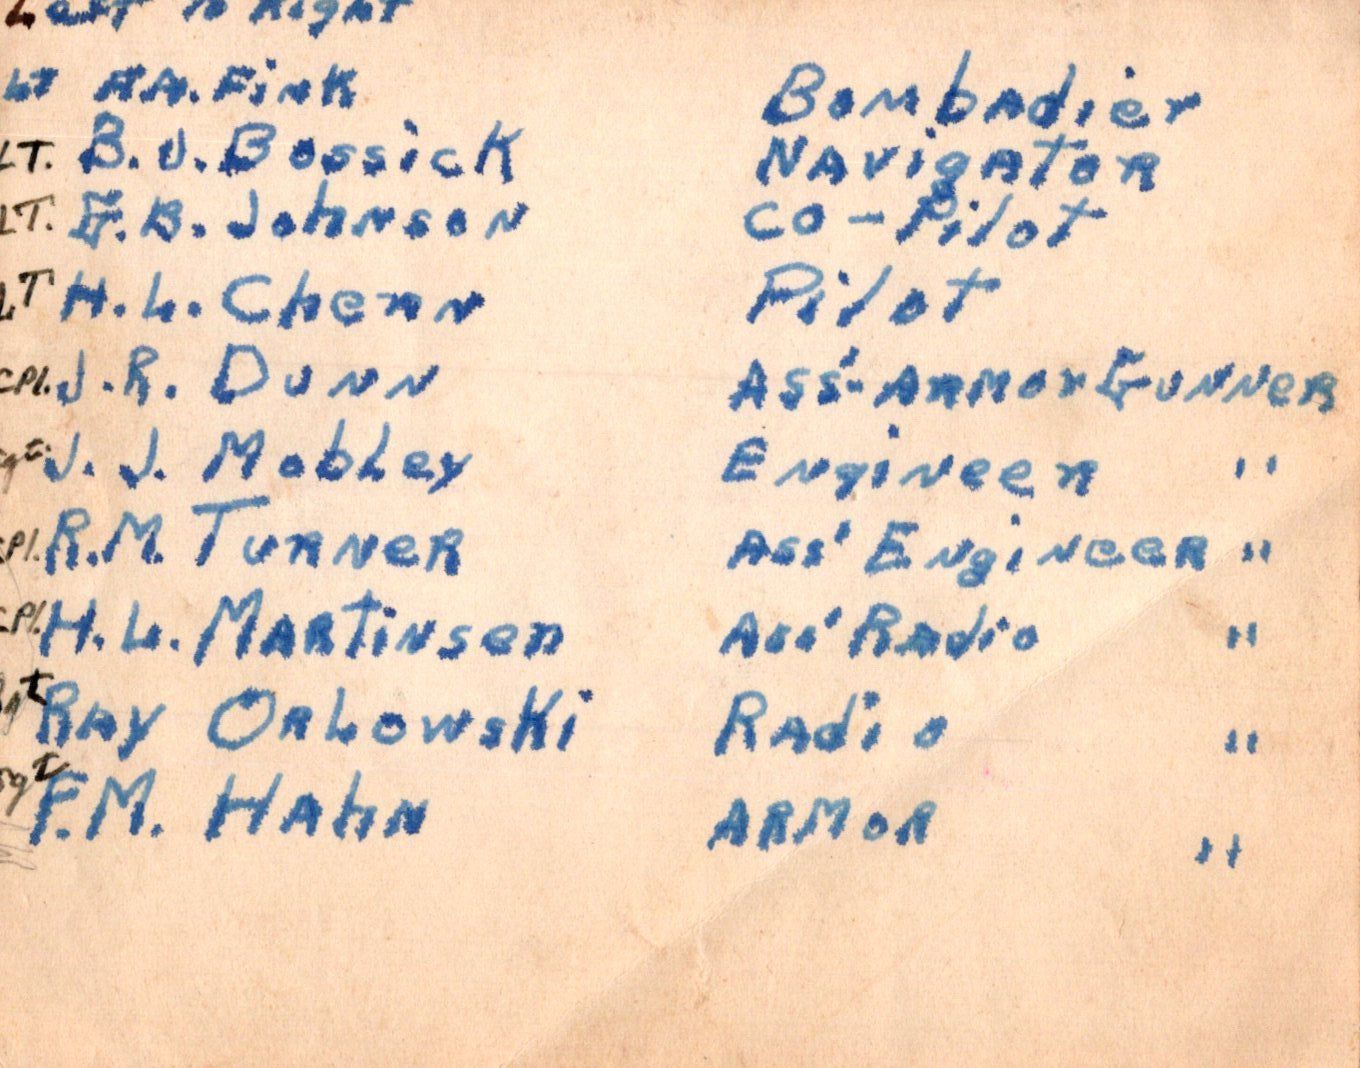 Left to Right
Lt A.A. Fink Bombadier
LT. B.J. Bossick Navigator
LT. G.B. Johnson CO-Pilot
LT H.L. Chenn Pilot
CPl. J.R. Dunn Ass'-Armor Gunner
Sgt. J.J. Mobley Engineer "
CPl. R.M. Turner Ass' Engineer "
CPl. H.L. Martinsen Ass' Radio "
Sgt Ray Orlowski Radio "
Sgt F.M. Hahn ARMOR "